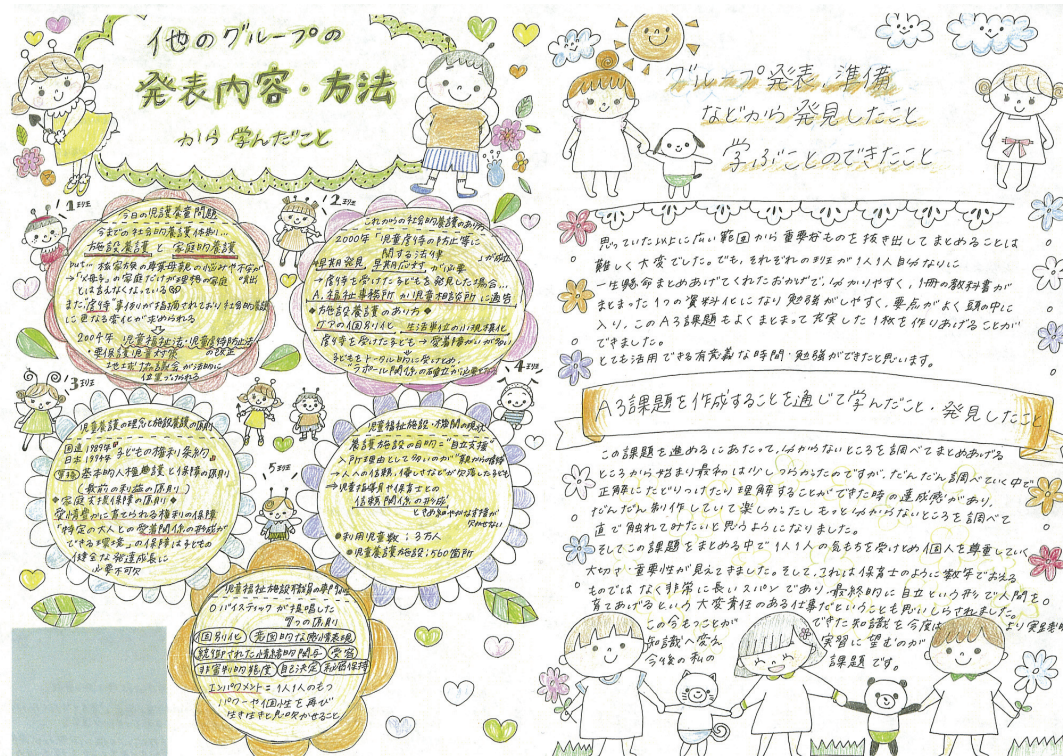 他のグループの
発表内容・方法
から学んだこと
1班
今日の児童養育問題
今までの社会的養護体制…
施設養護 と 家庭的養護
but… 核家族の専業母親の悩みや不安が
→「父母子」の家庭だけが理想の家庭
とは言えなくなっている
また虐待事例が指摘されており社会的養護
に更なる変化が求められる
2004年 児童福祉法・児童虐待防止法
の改正
・要保護児童対策
地域協議会が法的に
位置づけられる
2班
これからの社会的養護のあり方
2000年「児童虐待の防止等に
関する法律」が成立
→早期発見、早期応対、が必要
→虐待を受けた子どもを発見した場合…
A. 福祉事務所か児童相談所に通告
◆施設養護のあり方◆
ケアの個別化、生活単位の小規模化
虐待を受けた子ども → 愛着障がいが多い
子どもをトータル的に受けとめ、
"ラポール関係"の確立が必要
3班
児童養護の理念と施設養護の原則
国連 1989年
日本 1994年
子どもの権利条約
基本的人権擁護と保障の原則
(最前の利益の原則)
◆家庭支援保障の原則◆
愛情豊かに育てられる権利の保障
"特定の大人との愛着関係の形成が
できる環境"の保障は子どもの
健全な発達成長に
必要不可欠
4班
児童福祉施設・機関の現状
養護施設の目的="自立支援"
入所理由として多いのが"親からの虐待"
→人への信頼、優しさなどが欠落した子ども
→児童指導員や保育士との
信頼関係の形成!
ときめ細やかな支援が
欠かせない
◆利用児童数:3万人
◆児童養護施設:560箇所
5班
児童福祉施設職員の専門性
○バイスティックが提唱した
7つの原則
個別化 意図的な感情表現
統御された情緒的関与 受容
非審判的態度 自己決定 秘密保持
エンパワメント=1人1人のもつ
パワーや個性を再び
生き生きと息吹かせること
グループ発表、準備
などから発見したこと
学ぶことのできたこと
思っていた以上に広い範囲から重要なものを抜き出してまとめることは
難しく大変でした。でも、それぞれの班が1人1人自分なりに
一生懸命まとめあげてくれたおかげで、分かりやすく、1冊の教科書が
まとまった1つの資料化になり勉強がしやすく、要点がよく頭の中に
入り、このA3課題もよくまとまって充実した1枚を作りあげることが
できました。
とても活用できる有意義な時間・勉強ができたと思います。
A3課題を作成することを通じて学んだこと・発見したこと
この課題を進めるにあたって、分からないところを調べてまとめあげる
ところから始まり最初は少しつらかったのですが、だんだん調べていく中で
正解にたどりつけたり理解することができた時の達成感があり、
だんだん制作していて楽しかったしもっと分からないところを調べて
直で触れてみたいと思うようになりました。
そしてこの課題をまとめる中で1人1人の気もちを受けとめ個人を尊重していく
大切さ・重要性が見えてきました。そして、これは保育士のように数年でおえる
ものではなく非常に長いスパンであり、最終的に自立という形で人間を
育てあげるという大変責任のある仕事だということも思いしらされました。
この今もつことが できた知識を今度は より実
知識へ変え 実習に望むのが
今後の私の 課題です。